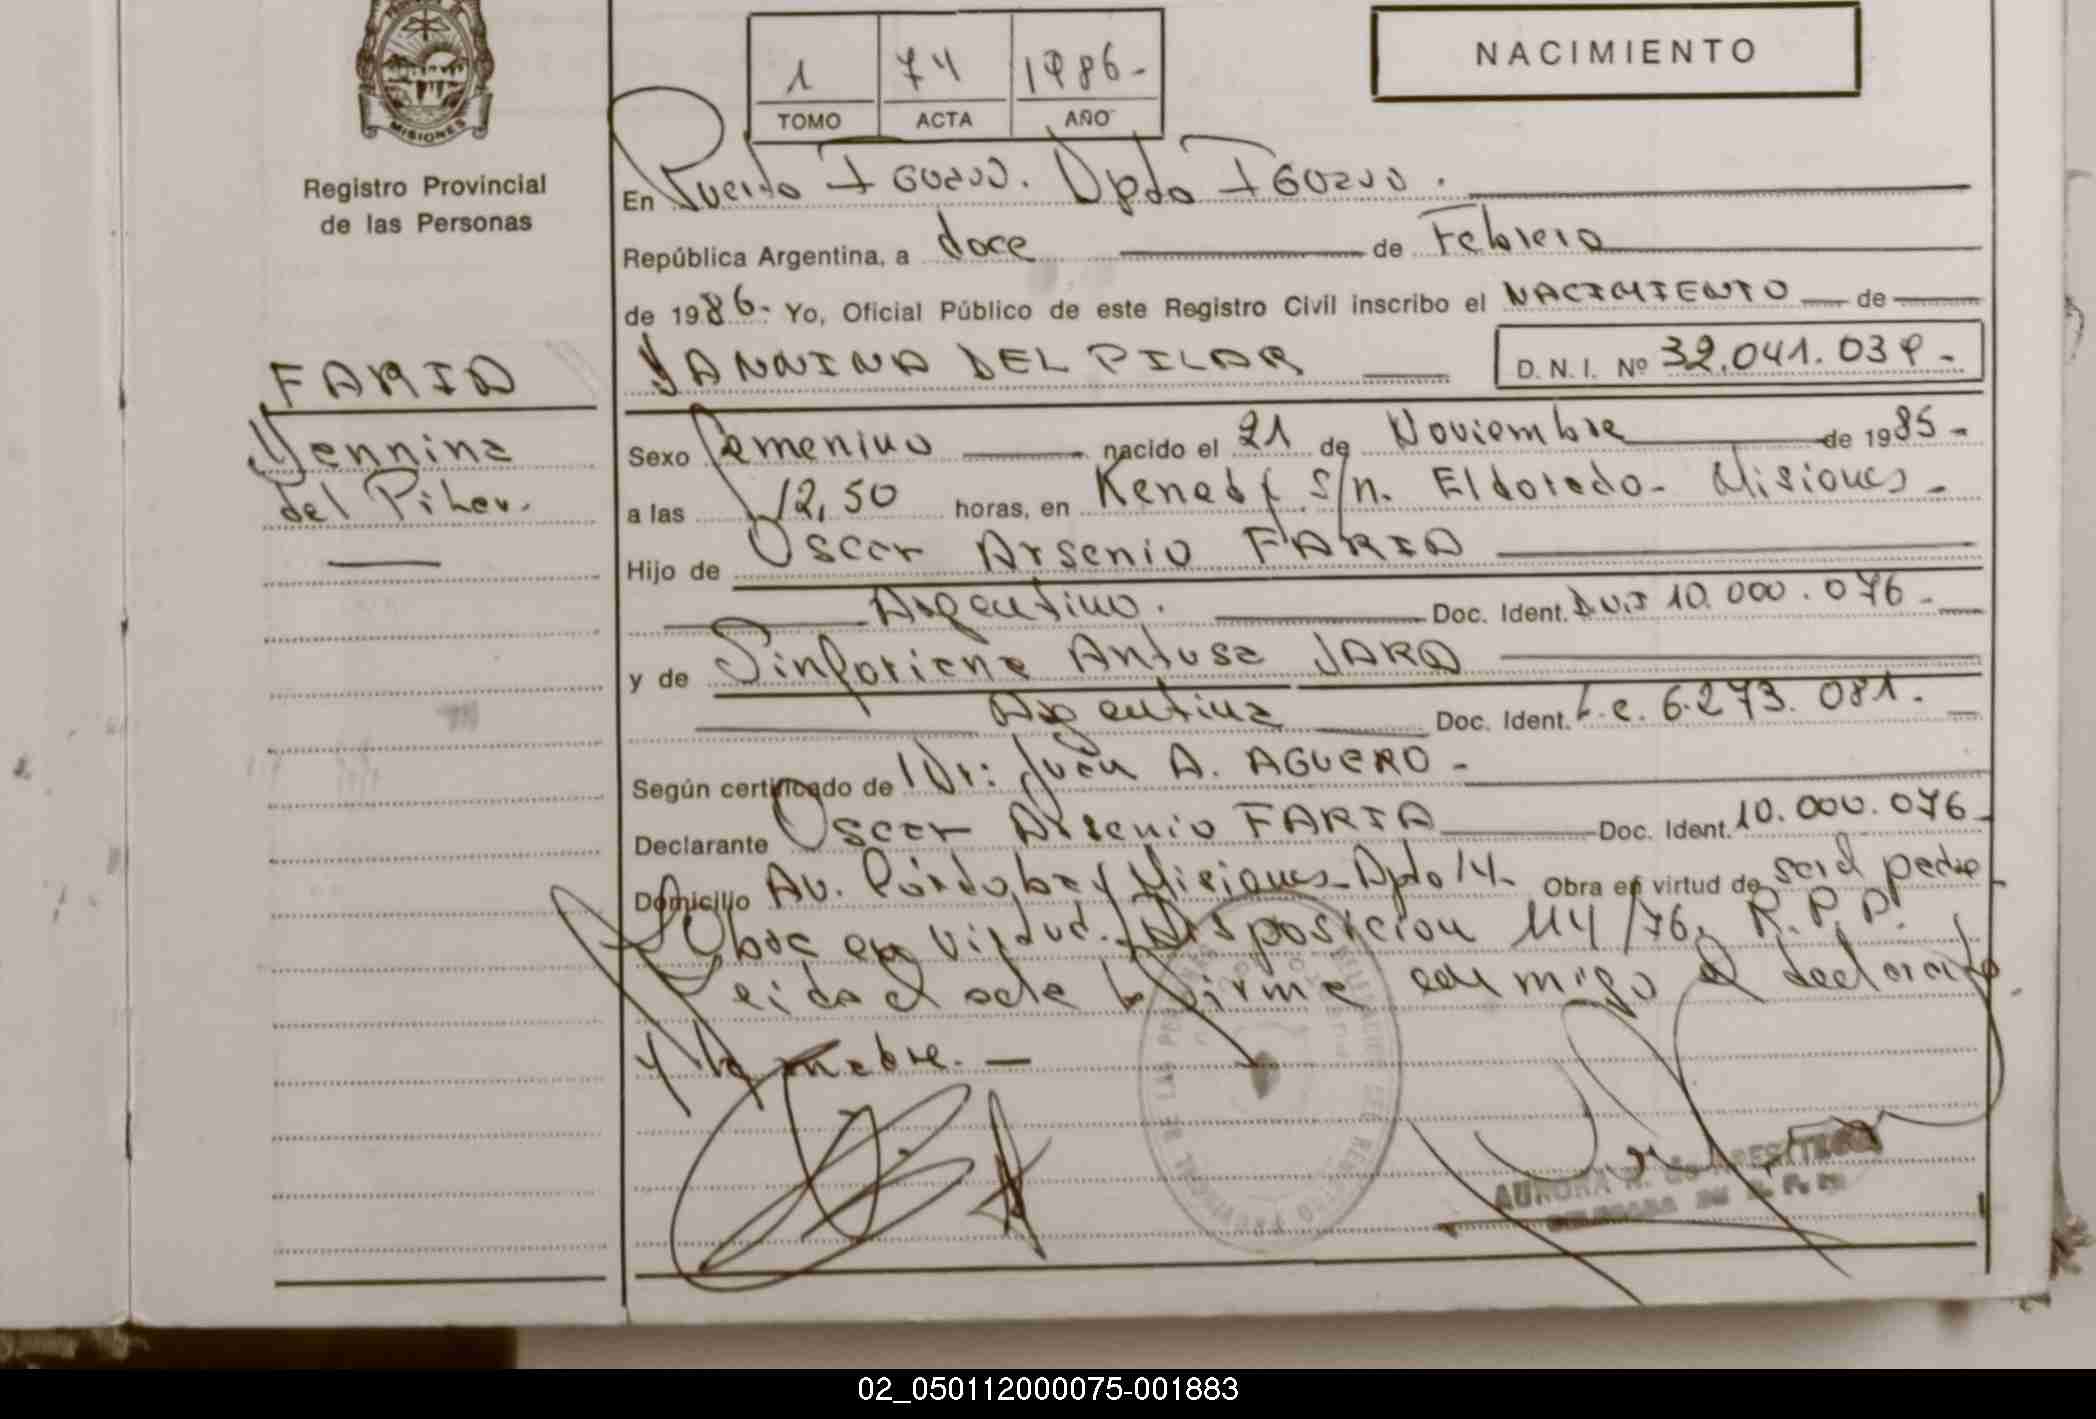 MISIONES
Registro Provincial
de las Personas
1 74 1986-
TOMO ACTA AÑO
NACIMIENTO
En Puerto Iguazú. Dpdo Iguazú.
República Argentina, a doce de Febrero
de 1986- Yo, Oficial Público de este Registro Civil inscribo el NACIMIENTO de
YANNINA DEL PILAR D.N.I. Nº 32.041.039-
FARIA
Yannina
del Pilar.
Sexo Femenino nacido el 21 de Noviembre de 1985-
a las 12,50 horas, en Kenedy s/n. Eldorado- Misiones-
Hijo de Oscar Arsenio FARIA
Argentino. Doc. Ident. D.N.I 10.000.076-
y de Sinforiana Antusa JARA
Argentina Doc. Ident. L.c. 6.273.081.
Según certificado de Dr: Juan A. AGUERO-
Declarante Oscar Arsenio FARIA Doc. Ident. 10.000.076-
Domicilio Av. Córdoba y Misiones- Dpdo 14- Obra en virtud de ser el padre
Obra en virtud. Disposicion 114/76. R.P.P.
Leida el acta la firma conmigo el declarante
y la madre.-
AURORA N. de
02_050112000075-001883